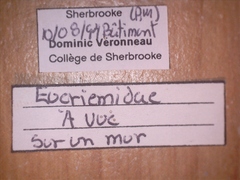 Sherbrooke (Am)
10/08/94 Bâtiment
Dominic Véronneau
Collège de Sherbrooke
Eucriemidae
A vue
sur un mur